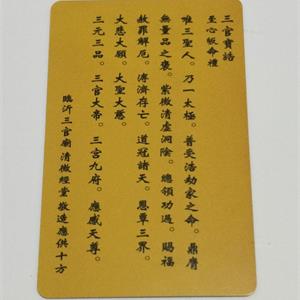 三官寶誥
至心皈命禮
唯三聖人。乃一太極。普受浩劫家之命。鼎膺
無量品之褒。紫微清虛洞陰。總領功過。賜福
赦罪解厄。溥濟存亡。道冠諸天。恩覃三界。
大悲大願。大聖大慈。
三元三品。三官大帝。三宮九府。應感天尊。
臨沂三官廟清微經堂敬造應供十方